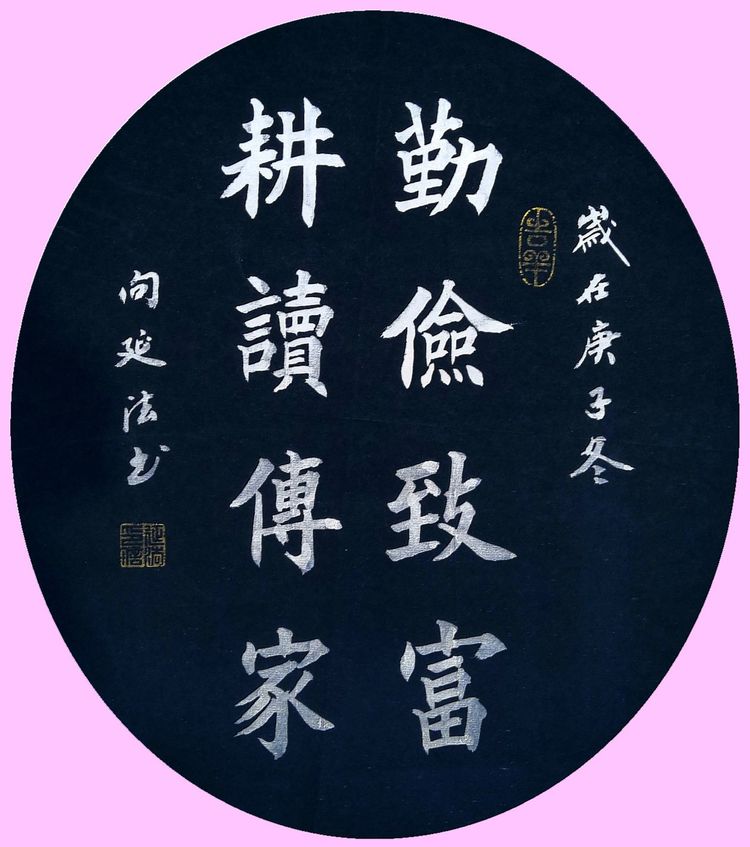 歲在庚子冬
勤儉致富
耕讀傳家
向延法书